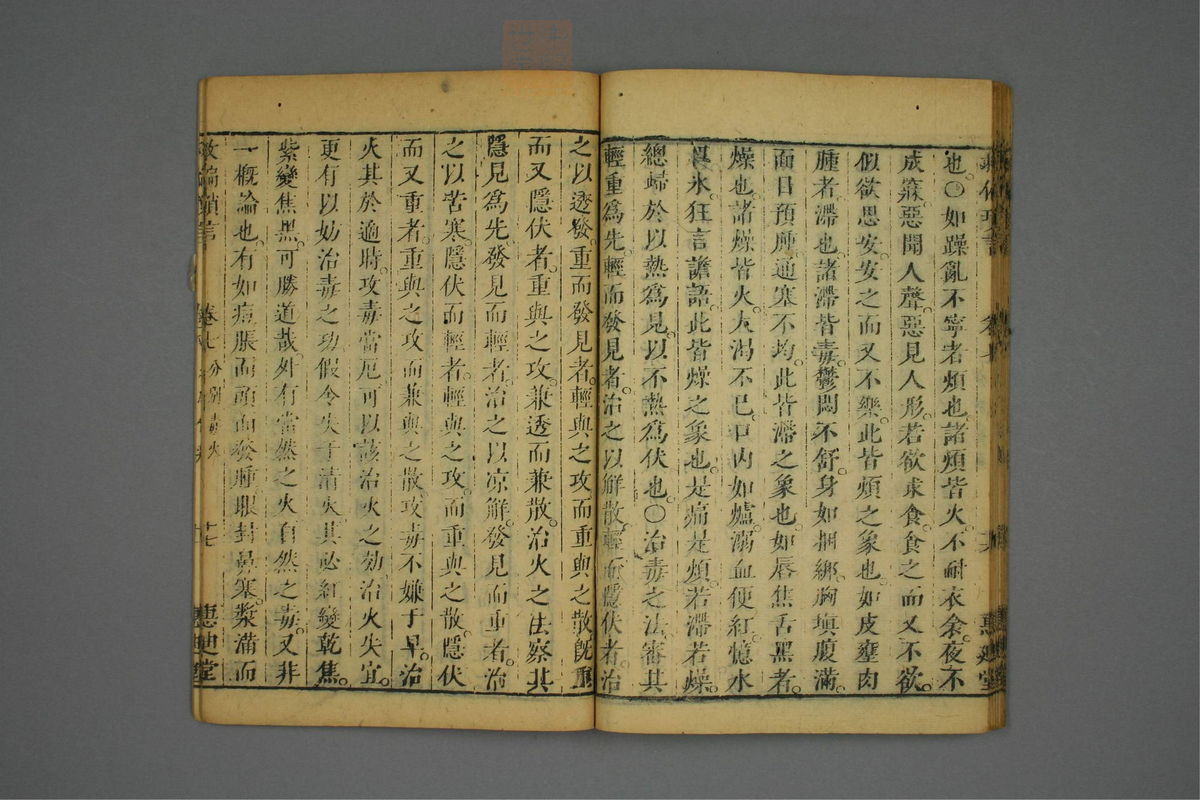 也〇如躁亂不寧者煩也諸煩皆火不耐衣衾夜不
成寐惡聞人聲惡見人形若欲求食食之而又不欲
似欲思安安之而又不樂此皆煩之象也如皮壅肉
腫者滯也諸滯皆毒鬱悶不舒身如捆綁胸塡腹滿
面目預腫通寒不均此皆滯之象也如唇焦舌黑者
燥也諸燥皆火大渴不已口內如爐溺血便紅憶水
冰狂言譫語此皆燥之象也是痛是煩若滯若燥
總歸於以熱爲見以不熱爲伏也〇治毒之法審其
輕重爲先輕而發見者治之以解散輕而隱伏者治
之以透發重而發見者輕與之攻而重與之散旣重
而又隱伏者重與之攻兼透而兼散治火之法察其
隱見爲先發見而輕者治之以凉解發見而重者治
之以苦寒隱伏而輕者輕與之攻而重與之散隱伏
而又重者重與之攻而兼與之散攻毒不嫌于早治
火其於適時攻毒當厄可以該治火之効治火失宜
更有以妨治毒之功假令失于清火其必紅變乾焦
紫變焦黑可勝道哉外有當然之火自然之毒又非
一概論也有如痘脹而頭面發腫眼封鼻塞漿滿而
卷七 分別毒火 十七 惠迪堂